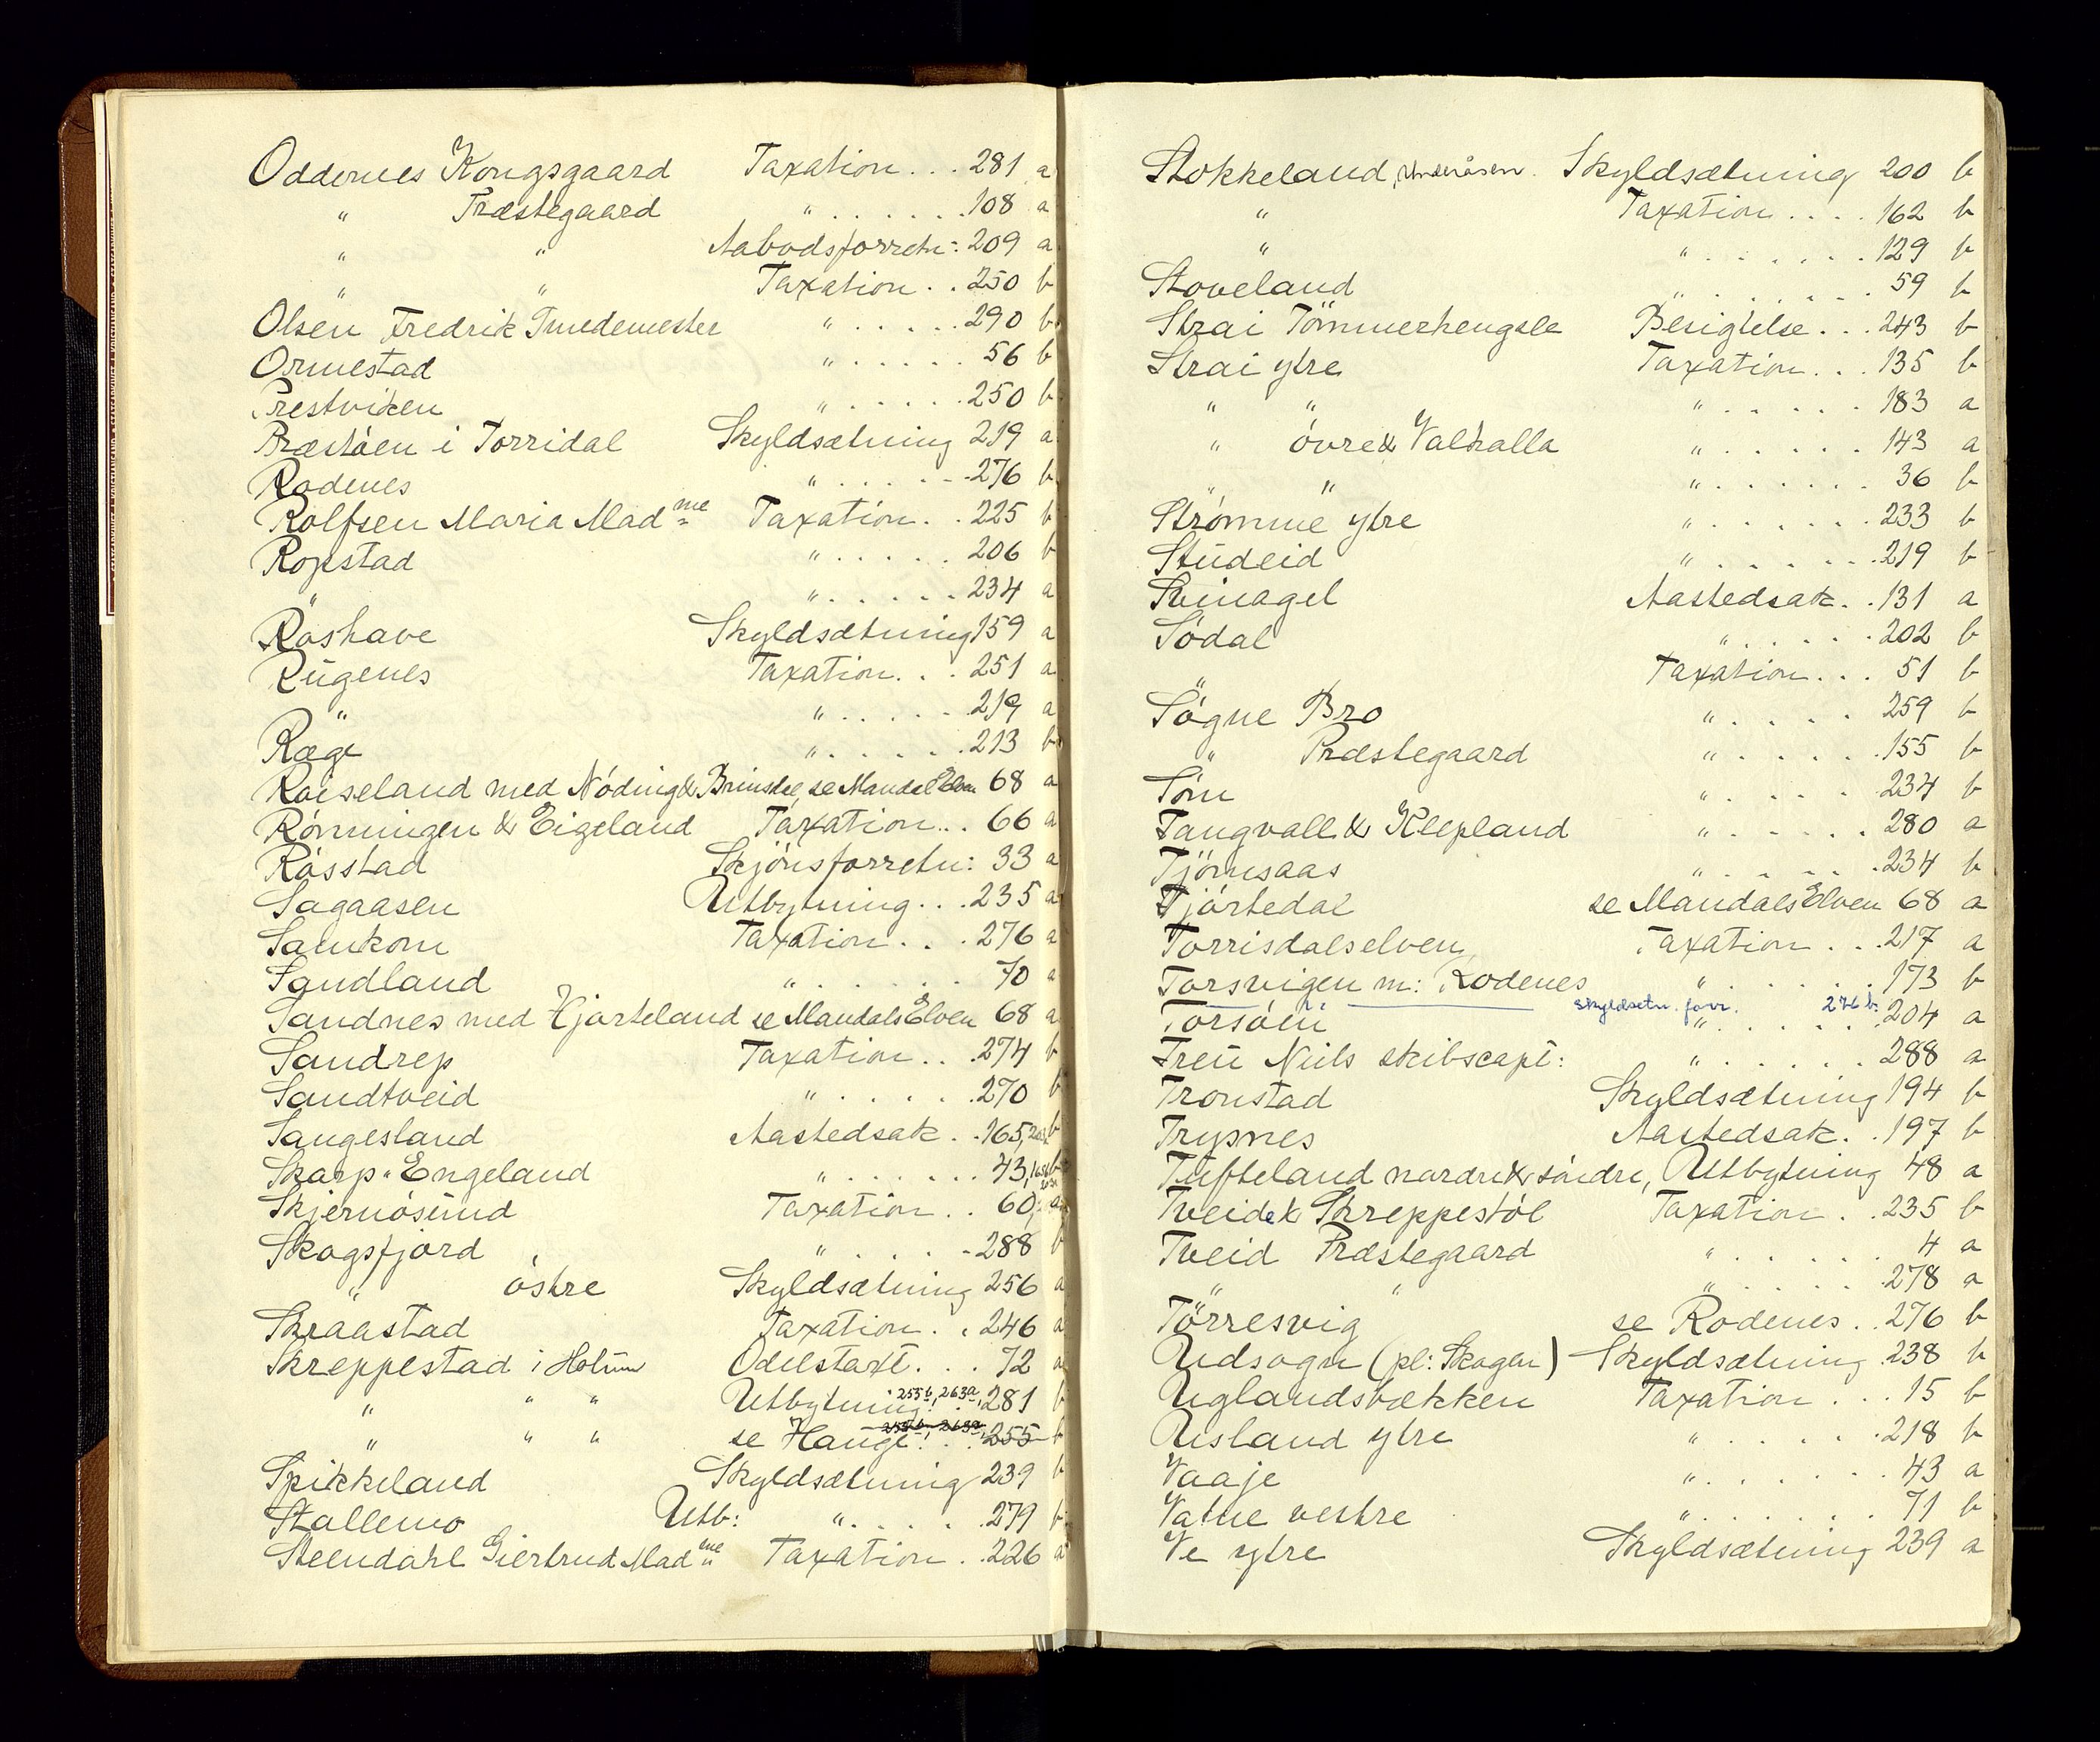 Oddernes Kongsgaard Taxation . . . 281 a
" Præstegaard " . . . . . . . 108 a
" " Aabodsforretn: 209 a
" " Taxation . . 250 b
Olsen Fredrik Smedemester " . . . . . 290 b
Ormestad " . . . . . . 56 b
Prestviken " . . . . . . 250 b
Præstöen i Torridal Skyldsætning 219 a
Rodenes " . . . . . . 276 b
Rolfsen Maria Madme Taxation . . 225 b
Ropstad " . . . . . 206 b
" " . . . . . . 234 a
Roshave Skyldsætning 159 a
Rügenes Taxation . . . 251 a
" " . . . . . . 219 a
Ræge " . . . . . . 213 b
Röiseland med Nöding & Brinsdal, se Mandal Elven 68 a
Rönningen & Eigeland Taxation . . . 66 a
Rösstad Skjönsforretn: 33 a
Sagaasen Utbytning . . . 235 a
Samkom Taxation . . . 276 a
Sandland " . . . . . . 70 a
Sandnes med Hjorteland se Mandals Elven 68 a
Sandrep Taxation . . . 274 b
Sandtveid " . . . . . . 270 b
Sangesland Aastedsak . . 165, b
Skarp-Engeland " . . . . . . . 43, b
Skjernösund Taxation . . 60, a
Skogsfjord " . . . . . 288 b
" östre Skyldsætning 256 a
Skraastad Taxation . . 246 a
Skreppestad i Holüm Odelstaxt . . . 72 a
" " " Utbytning 255 b, 263 a, 281 b
" " " se Hauge . 255 b, 263 a, 255 b
Spikkeland Skyldsætning 239 b
Stallemo Utb: " . . . . . 279 b
Steendahl Giertrud Madme Taxation . 226 a
Stokkeland, Underåsen. Skyldsætning 200 b
" Taxation . . . . 162 b
" " . . . . . . . 129 b
Stoveland " . . . . . . . 59 b
Strai Tömmerhengsle Besigtelse . . . 243 b
Strai ytre Taxation . . . 135 b
" " " . . . . . 183 a
" övre & Valhalla " . . . . . . 143 a
" " " . . . . . . 36 b
Strömme ytre " . . . . . . . 233 b
Stüdeid " . . . . . . . 219 b
Svinagel Aastedsak . . 131 a
Södal " . . . . . . 202 b
" Taxation . . . 51 b
Sögne Bro " . . . . . 259 b
" Præstegaard " . . . . . . 155 b
Söm " . . . . . 234 b
Tangvall & Klepland " . . . . . . 280 a
Tjömsaas " . . . . . . 234 b
Tjörtedal se Mandals Elven 68 a
Torrisdalselven Taxation . . . 217 a
Torsvigen m: Rodenes " . . . . . . 173 b
Skyldsetn. forr. 276 b.
Torsöen " . . . . . . 204 a
Treü Niels skibscapt: " . . . . . . 288 a
Tronstad Skyldsætning 194 b
Trysnes Aastedsak . . 197 b
Tufteland nordre & söndre, Utbytning 48 a
Tveide & Skreppestöl Taxation . . 235 b
Tveid Præstegaard " . . . . . . 4 a
" " " . . . . . . 278 a
Törresvig se Rodenes . 276 b
Udsogn (pl: Skogen) Skyldsætning 238 b
Uglandsbækken Taxation . . . 15 b
Uisland ytre " . . . . . . 218 b
Vaaje " . . . . . . 43 a
Vatne vestre " . . . . . . . 71 b
Ve ytre Skyldsætning 239 a